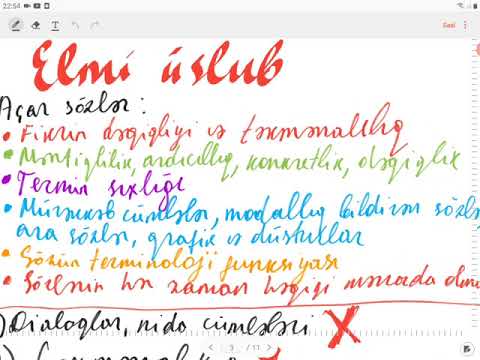 22:54
84%
T
Saxl
Elmi üslub
Açar sözlər:
• Fikrin dəqiqliyi və təkmənalılıq
• Məntiqlilik, ardıcıllıq, konkretlik, dəqiqlik
• Termin sıxlığı
• Mürəkkəb cümlələr, modallıq bildirən sözlər
ara sözlər, qrafik və düsturlar
• Sözün terminoloji funksiyası
• Sözlərin hər zaman həqiqi mənada olma
) Dialoqlar, nida cümlələri X
3 / 11